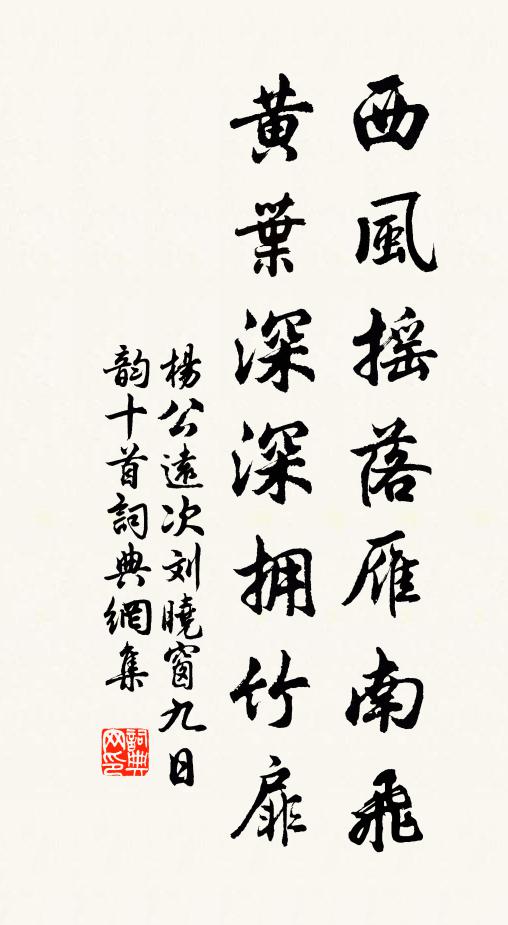 西風摇落雁南飛
黄葉深深拥竹扉
楊公遠次刘曉窗九日
韵十首詞典網集
詞典網印